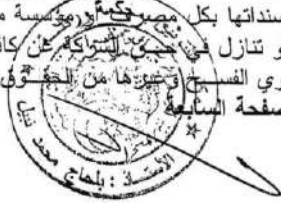 سنداتها بكل مصرف أو مؤسسة م
و تنازل في حق الشراكة عن كاف
وي الفسيح و غيرها من الحقوق
صفحة السابعة
الأستاذ : بلحاج محمد نبيل